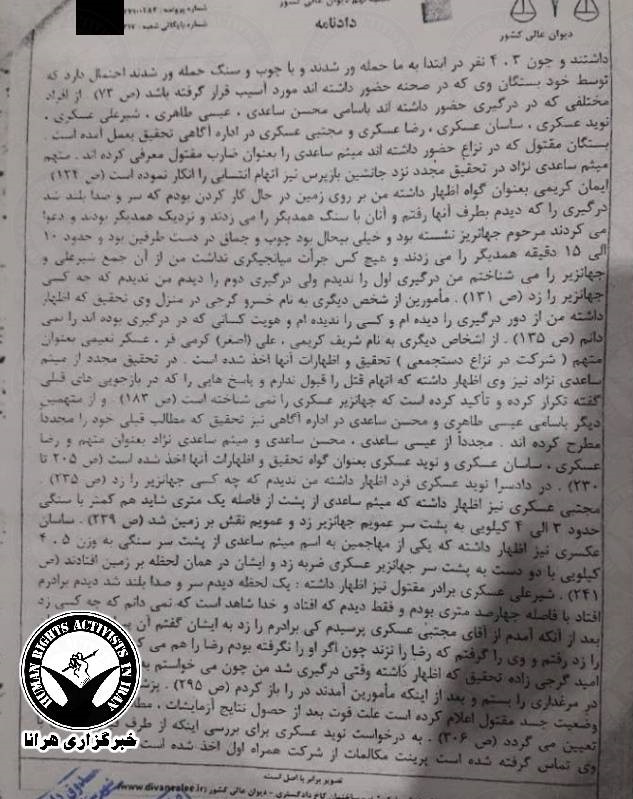 دیوان عالی کشور
دادنامه
شماره پرونده:
شماره بایگانی شعبه:
داشتند و چون ۳،۴ نفر در ابتدا به ما حمله ور شدند و با چوب و سنگ حمله ور شدند احتمال دارد که
توسط خود بستگان وی که در صحنه حضور داشته اند مورد آسیب قرار گرفته باشد (ص ۷۳) از افراد
مختلفی که در درگیری حضور داشته اند باسامی محسن ساعدی ، عیسی طاهری ، شیرعلی عسکری ،
نوید عسکری ، ساسان عسکری ، رضا عسکری و مجتبی عسکری در اداره آگاهی تحقیق بعمل آمده است .
بستگان مقتول که در نزاع حضور داشته اند میثم ساعدی را بعنوان ضارب مقتول معرفی کرده اند . متهم
میثم ساعدی نژاد در تحقیق مجدد نزد جانشین بازپرس نیز اتهام انتسابی را انکار نموده است (ص ۱۲۴)
ایمان کریمی بعنوان گواه اظهار داشته من بر روی زمین در حال کار کردن بودم که سر و صدا بلند شد
درگیری را که دیدم بطرف آنها رفتم و آنان با سنگ همدیگر را می زدند و نزدیک همدیگر بودند و دعوا
می کردند مرحوم جهانزیر نشسته بود و خیلی بیحال بود چوب و چماق در دست طرفین بود و حدود ۱۰
الی ۱۵ دقیقه همدیگر را می زدند و هیچ کس جرأت میانجیگری نداشت من از آن جمع شیرعلی و
جهانزیر را می شناختم من درگیری اول را ندیدم ولی درگیری دوم را دیدم من ندیدم که چه کسی
جهانزیر را زد (ص ۱۳۱) . مأمورین از شخص دیگری به نام خسرو گرجی در منزل وی تحقیق که اظهار
داشته من از دور درگیری را دیده ام و کسی را ندیده ام و هویت کسانی که در درگیری بوده اند را نمی
دانم (ص ۱۳۵) . از اشخاص دیگری به نام شریف کریمی ، علی (اصغر) کرمی فر ، عسکر نعیمی بعنوان
متهم ( شرکت در نزاع دستجمعی ) تحقیق و اظهارات آنها اخذ شده است . در تحقیق مجدد از میثم
ساعدی نژاد نیز وی اظهار داشته که اتهام قتل را قبول ندارم و پاسخ هایی را که در بازجویی های قبلی
گفته تکرار کرده و تأکید کرده است که جهانزیر عسکری را نمی شناخته است (ص ۱۸۳) . و از متهمین
دیگر باسامی عیسی طاهری و محسن ساعدی در اداره آگاهی نیز تحقیق که مطالب قبلی خود را مجدداً
مطرح کرده اند . مجدداً از عیسی ساعدی ، محسن ساعدی و میثم ساعدی نژاد بعنوان متهم و رضا
عسکری ، ساسان عسکری و نوید عسکری بعنوان گواه تحقیق و اظهارات آنها اخذ شده است (ص ۲۰۵ تا
۲۳۰) . در دادسرا نوید عسکری فرد اظهار داشته من ندیدم که چه کسی جهانزیر را زد (ص ۲۳۵) .
مجتبی عسکری نیز اظهار داشته که میثم ساعدی از پشت از فاصله یک متری شاید هم کمتر با سنگی
حدود ۳ الی ۴ کیلویی به پشت سر عمویم جهانزیر زد و عمویم نقش بر زمین شد (ص ۲۳۹) . ساسان
عکسری نیز اظهار داشته که یکی از مهاجمین به اسم میثم ساعدی از پشت سر سنگی به وزن ۵ ، ۴
کیلویی با دو دست به پشت سر جهانزیر عسکری ضربه زد و ایشان در همان لحظه بر زمین افتادند (ص
۲۴۱) . شیرعلی عسکری برادر مقتول نیز اظهار داشته : یک لحظه دیدم سر و صدا بلند شد دیدم برادرم
افتاد با فاصله چهارصد متری بودم و فقط دیدم که افتاد و خدا شاهد است که نمی دانم که چه کسی زد
بعد از آنکه آمدم از آقای مجتبی عسکری پرسیدم کی برادرم را زد به ایشان گفتم آن
را زد رفتم و وی را گرفتم که رضا را نزند چون اگر او را نگرفته بودم رضا را هم می
امید گرجی زاده تحقیق که اظهار داشته وقتی درگیری شد من چون می خواستم
در مرغداری را بستم و بعد از اینکه مأمورین آمدند در را باز کردم (ص ۲۹۵) .
وضعیت جسد مقتول اعلام کرده است علت فوت بعد از حصول نتایج آزمایشات ،
تعیین می گردد (ص ۳۰۶) . به درخواست نوید عسکری برای بررسی اینکه از طرف
وی تماس گرفته شده است پرینت مکالمات از شرکت همراه اول اخذ شده است
تصویر برابر با اصل است
دیوان عالی کشور (www.divanealee.ir
HUMAN RIGHTS ACTIVISTS IN IRAN
خبرگزاری هرانا